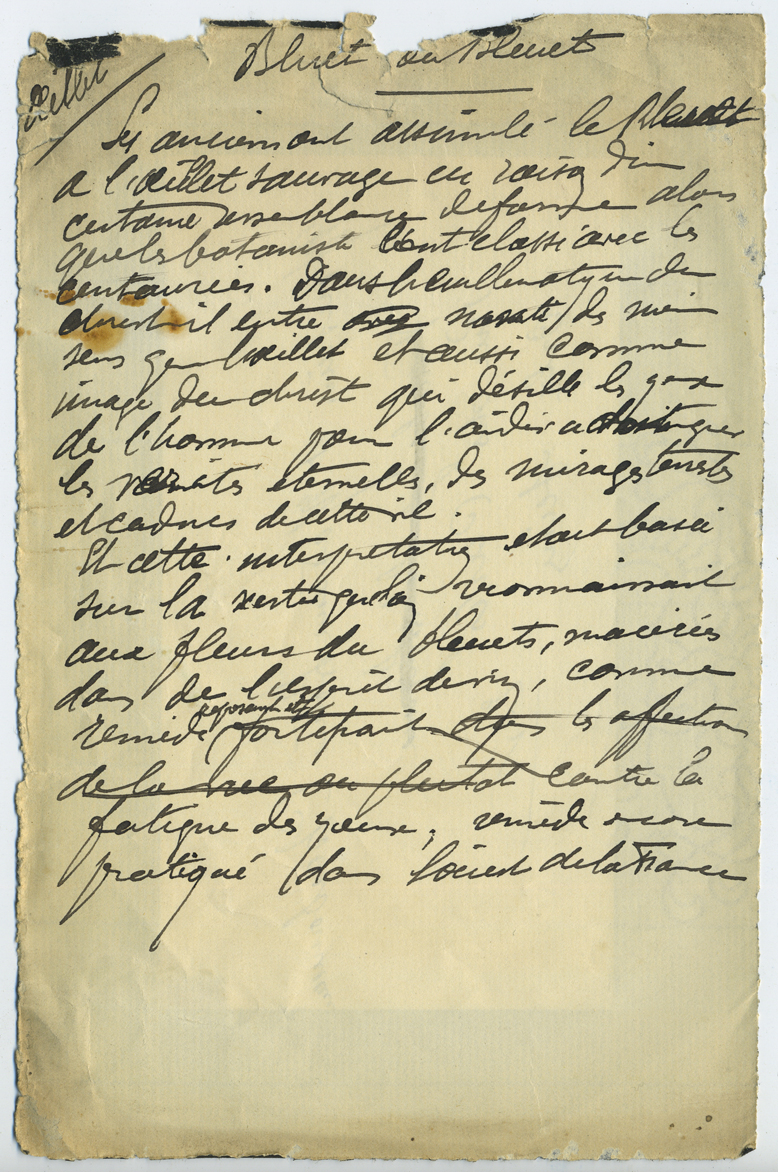 Œillet
Bluet ou Bleuet
Les anciens ont assimilé le Bleuet
a l'œillet sauvage en raison d'un
certaine ressemblance de forme alors
que les botanistes l'ont classé avec les
centaurées. Dans l'emblematique du
christ il entre avec des mem
sens que l'œillet et aussi comme
image du christ qui désille les yeux
de l'homme pour l'aider a distinguer
les verités eternelles, des mirages terrestres
et caducs de cette vie.
Et cette interpretation etait basée
sur la vertu que l'on reconnaissait
aux fleurs du bleuets, macérées
dans de l'esprit de vin, comme
remède reposant et fortifiant dans les affections
de la vue ou plutot contre la
fatigue des yeux; remède encore
pratiqué dans l'ouest de la France